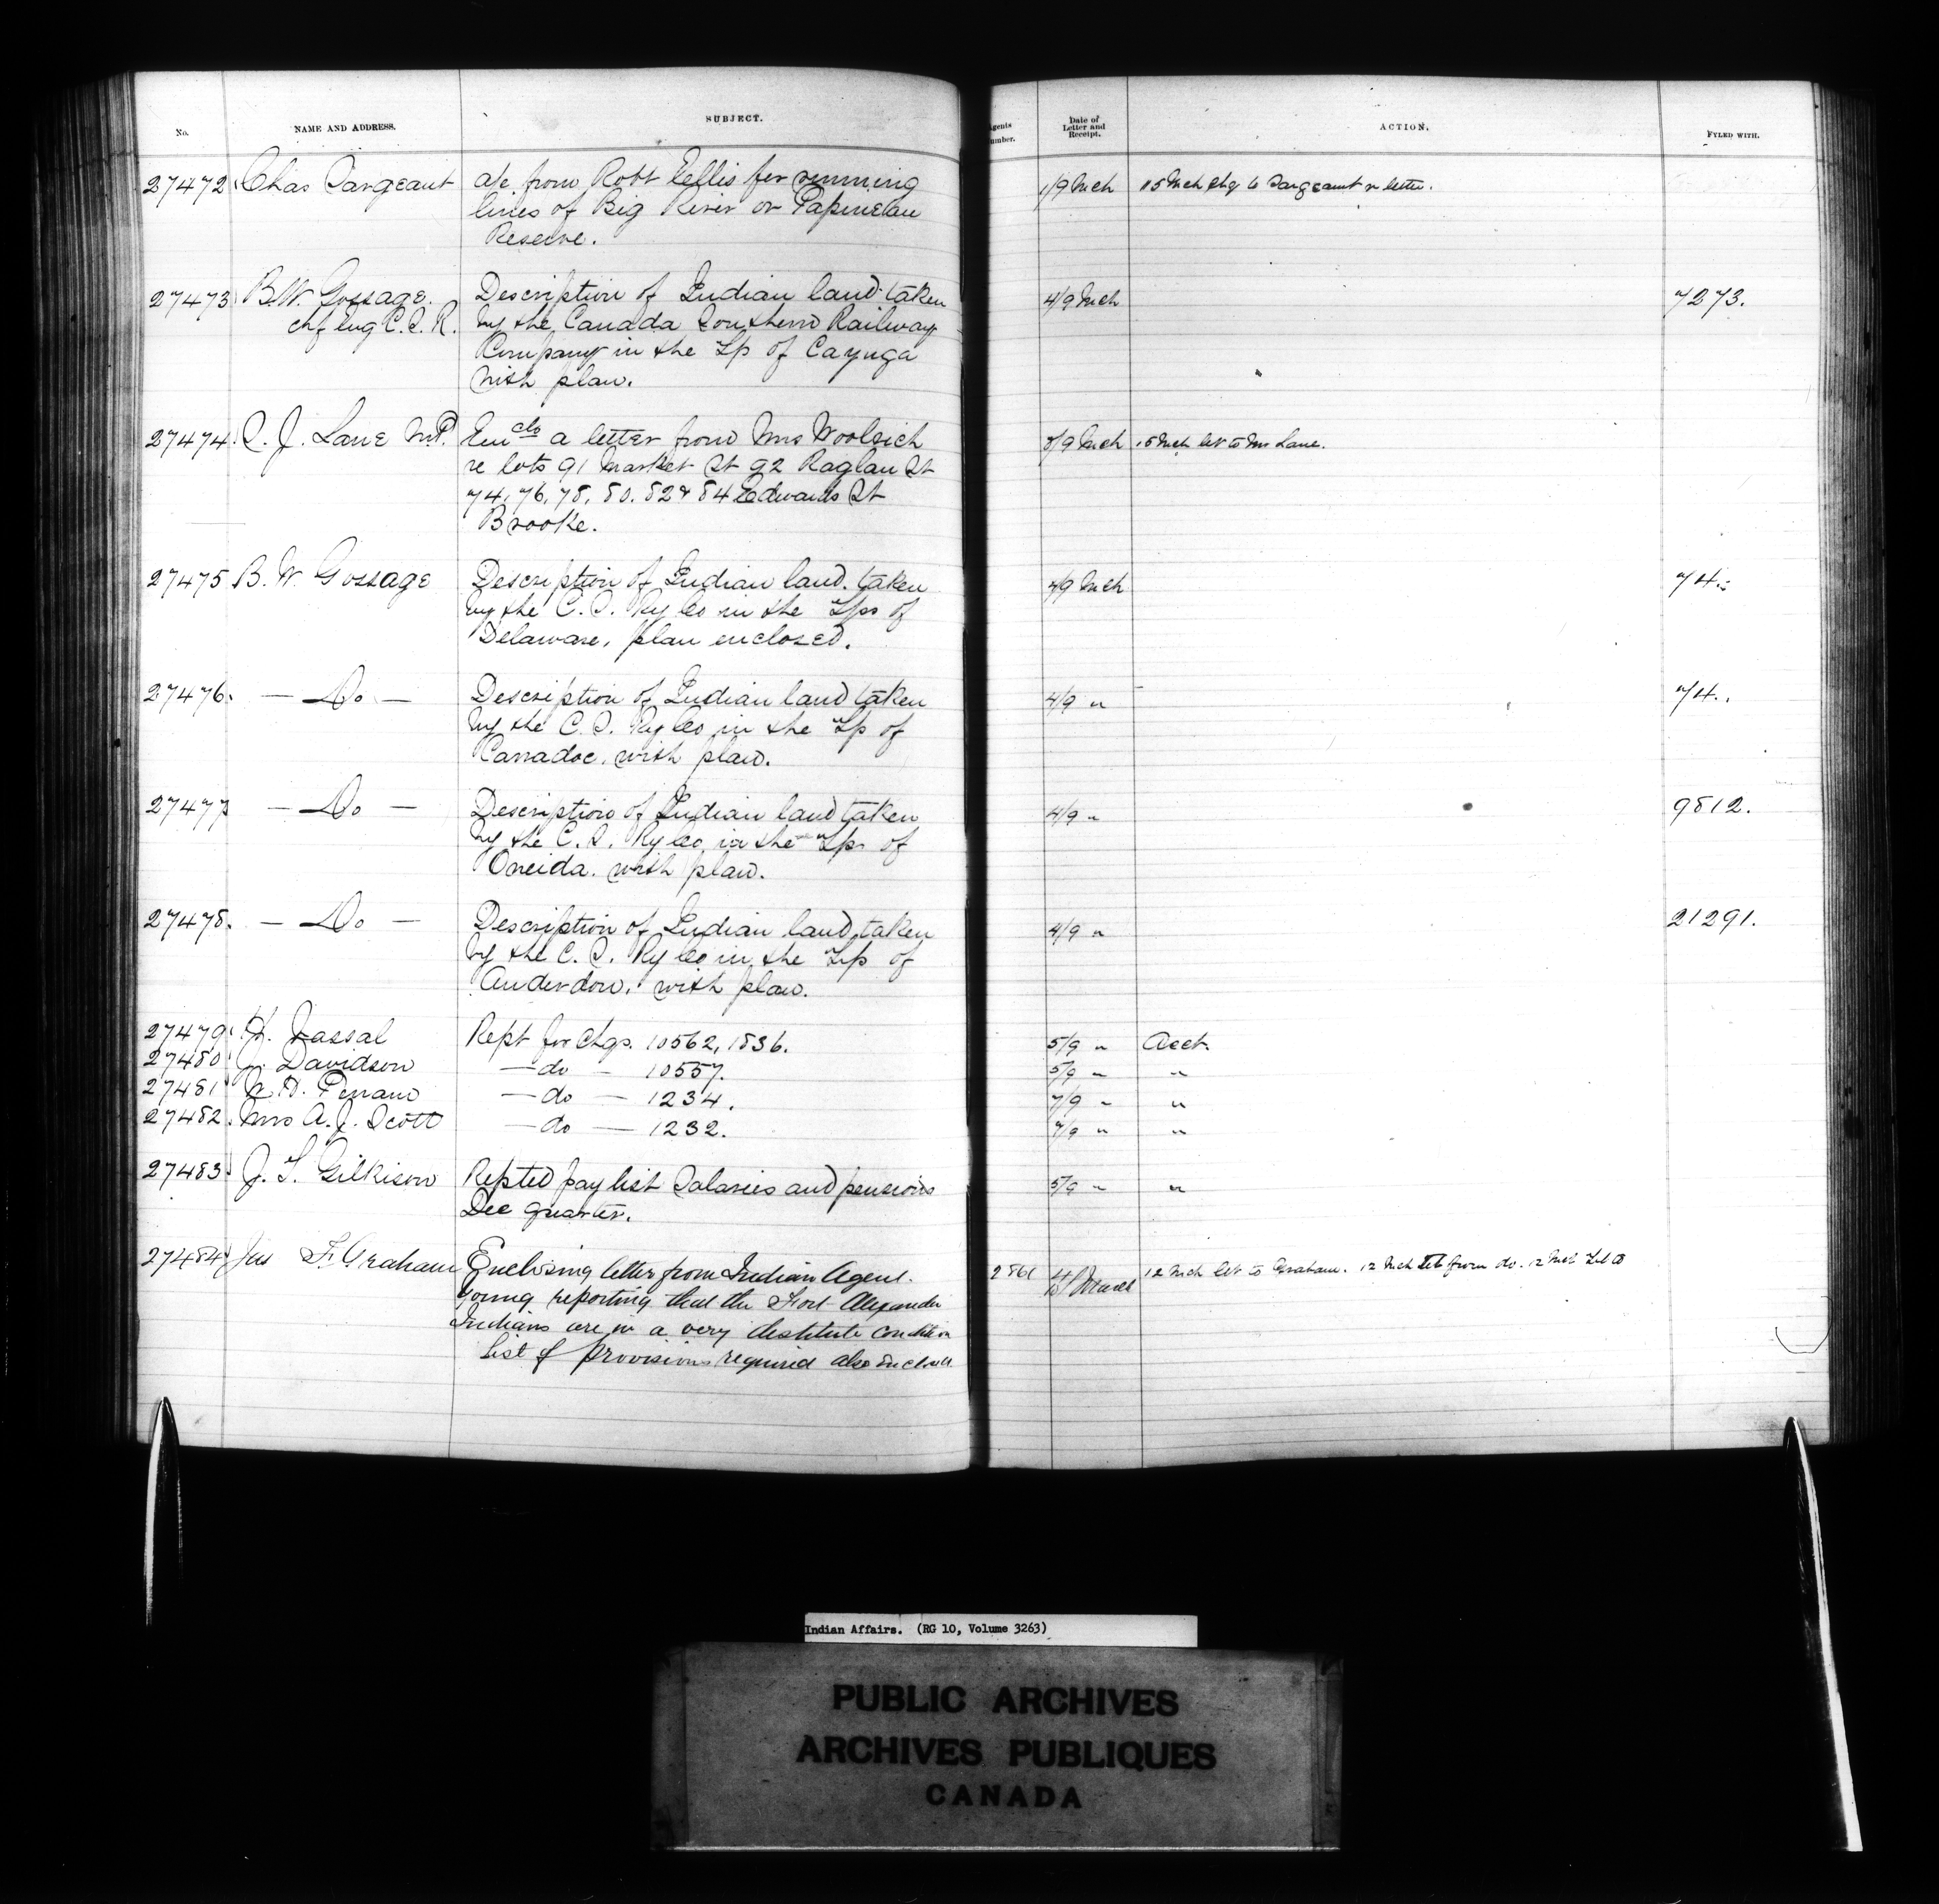 No.
NAME AND ADDRESS.
SUBJECT.
Agents
Number.
Date of
Letter and
Receipt.
ACTION.
FYLED WITH.
27472. Chas Sargeant a/c from Robt Ellis for running 1/9 Mch 15 Mch chq to Sargeant in letter.
lines of Big River or Papineau
Reserve.
27473 B.W. Gossage. Description of Indian land taken 4/9 Mch 7273.
chf Eng C.S.R. by the Canada Southern Railway
Company in the Tp of Cayuga
with plan.
27474. S. J. Lane M.P. Enclo a letter from Mrs Woolsich 8/9 Mch 15 Mch let to Mr Lane.
re lots 91 Market St 92 Raglan St
74, 76, 78, 80, 82 & 84 Edwards St
Brooke.
27475 B. W. Gossage Description of Indian land taken 4/9 Mch 74.
by the C. S. Ry Co in the Tps of
Delaware, plan enclosed.
27476. — Do — Description of Indian land taken 4/9 " 74.
by the C. S. Ry Co in the Tp of
Carradoc, with plan.
27477 — Do — Description of Indian land taken 4/9 " 9812.
by the C. S. Ry Co in the Tps of
Oneida. with plan.
27478. — Do — Description of Indian land taken 4/9 " 21291.
by the C. S. Ry Co in the Tp of
Anderdon, with plan.
27479. H. Vassal Rept for Chqs. 10562, 1836. 5/9 " Acct.
27480 J. Davidson — do — 10557. 5/9 " "
27481 — do — 1234. 7/9 " "
27482. Mrs A. J. Scott — do — 1232. 7/9 " "
27483. J. T. Gilkison Repted pay list Salaries and pensions 5/9 " "
Dec quarter.
27484 Jas F. Graham Enclosing letter from Indian Agent 2861 12 Mch let to Graham. 12 Mch let from do. 12 Mch Tel to
Young reporting that the Fort Alexander
Indians are in a very destitute condition
list of provisions required also enclosed
Indian Affairs. (RG 10, Volume 3263)
PUBLIC ARCHIVES
ARCHIVES PUBLIQUES
CANADA